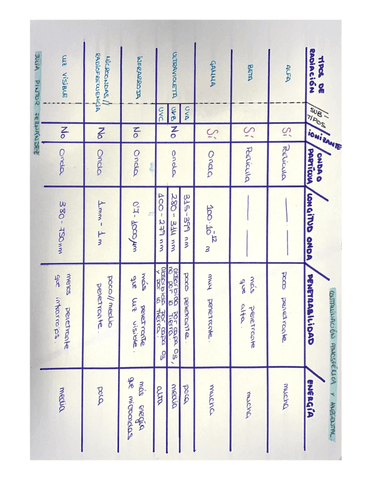 CONTAMINACIÓN ATMOSFÉRICA Y AMBIENTAL
TIPOS DE RADIACIÓN | SUB-TIPOS | IONIZANTE | ONDA O PARTÍCULA | LONGITUD ONDA | PENETRABILIDAD | ENERGÍA
ALFA | Sí | Partícula | — | poco penetrante | mucha
BETA | Sí | Partícula | — | más penetrante que alfa | mucha
GAMMA | Sí | Onda | 100·10⁻¹² m | muy penetrante | mucha
ULTRAVIOLETA | No | onda
UVA | 315-399 nm | poco penetrante | poca
UVB | 280-314 nm | absorbida por capa O₃, no por la Tierra | media
UVC | 100-279 nm | absorbida por capa O₃ y por la | alta
INFRARROJA | No | Onda | 0'7-1000μm | más penetrante que luz visible. | más energía que microondas
MICROONDAS/ RADIOFRECUENCIA | No | Onda | 1mm-1m | poco//medio penetrante | poca
LUZ VISIBLE | No | Onda | 380-750nm | menos penetrante que infrarrojos | media